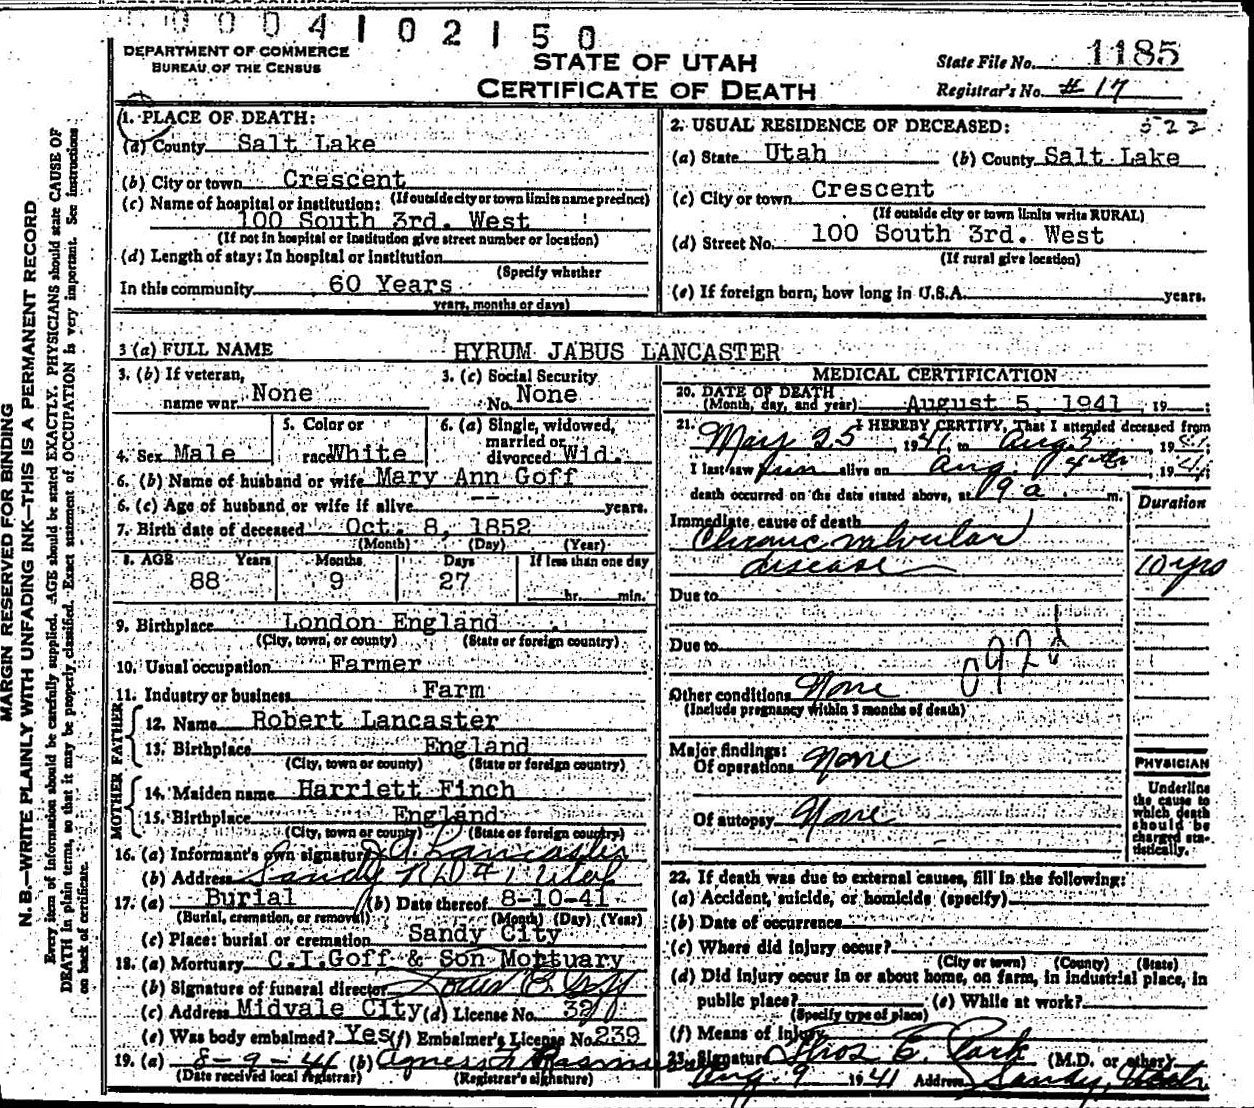 0004102150
DEPARTMENT OF COMMERCE
BUREAU OF THE CENSUS
STATE OF UTAH
CERTIFICATE OF DEATH
State File No. 1185
Registrar's No. #17
522
MARGIN RESERVED FOR BINDING
N. B.—WRITE PLAINLY WITH UNFADING INK—THIS IS A PERMANENT RECORD
Every item of information should be carefully supplied. AGE should be stated EXACTLY. PHYSICIANS should state CAUSE OF
DEATH in plain terms, so that it may be properly classified. Exact statement of OCCUPATION is very important. See instructions
on back of certificate.
1. PLACE OF DEATH:
(a) County Salt Lake
(b) City or town Crescent
(If outside city or town limits name precinct)
(c) Name of hospital or institution:
100 South 3rd. West
(If not in hospital or institution give street number or location)
(d) Length of stay: In hospital or institution
(Specify whether
In this community 60 Years
years, months or days)
2. USUAL RESIDENCE OF DECEASED:
(a) State Utah (b) County Salt Lake
(c) City or town Crescent
(If outside city or town limits write RURAL)
(d) Street No. 100 South 3rd. West
(If rural give location)
(e) If foreign born, how long in U.S.A. years.
3 (a) FULL NAME HYRUM JABUS LANCASTER
3. (b) If veteran,
name war None
3. (c) Social Security
No. None
4. Sex Male
5. Color or
race White
6. (a) Single, widowed,
married or
divorced Wid.
6. (b) Name of husband or wife Mary Ann Goff
6. (c) Age of husband or wife if alive -- years.
7. Birth date of deceased Oct. 8, 1852
(Month) (Day) (Year)
8. AGE Years Months Days If less than one day
88 9 27 hr. min.
9. Birthplace London England
(City, town, or county) (State or foreign country)
10. Usual occupation Farmer
11. Industry or business Farm
FATHER
12. Name Robert Lancaster
13. Birthplace England
(City, town or county) (State or foreign country)
MOTHER
14. Maiden name Harriett Finch
15. Birthplace England
(City, town or county) (State or foreign country)
16. (a) Informant's own signature J A Lancaster
(b) Address Sandy RD #1 Utah
17. (a) Burial (b) Date thereof 8-10-41
(Burial, cremation, or removal) (Month) (Day) (Year)
(c) Place: burial or cremation Sandy City
18. (a) Mortuary C.I.Goff & Son Mortuary
(b) Signature of funeral director
(c) Address Midvale City (d) License No. 320
(e) Was body embalmed? Yes (f) Embalmer's License No. 239
19. (a) 8-9-41 (b) Agnes
(Date received local registrar) (Registrar's signature)
MEDICAL CERTIFICATION
20. DATE OF DEATH
(Month, day, and year) August 5, 1941, 19
21. I HEREBY CERTIFY, That I attended deceased from
May 25, 1941 to Aug 19
I last saw him alive on Aug. 4th, 1941
death occurred on the date stated above, at 9 a m.
Duration
Immediate cause of death
Chronic valvular
disease 10 yrs
Due to
Due to
092d
Other conditions None
(Include pregnancy within 3 months of death)
Major findings:
Of operations None
Of autopsy None
PHYSICIAN
Underline
the cause to
which death
should be
charged sta-
tistically.
22. If death was due to external causes, fill in the following:
(a) Accident, suicide, or homicide (specify)
(b) Date of occurrence
(c) Where did injury occur?
(City or town) (County) (State)
(d) Did injury occur in or about home, on farm, in industrial place, in
public place? (e) While at work?
(Specify type of place)
(f) Means of Injury
23. Signature Thos C. Park (M.D. or other)
Aug. 9 1941 Address Sandy, Utah